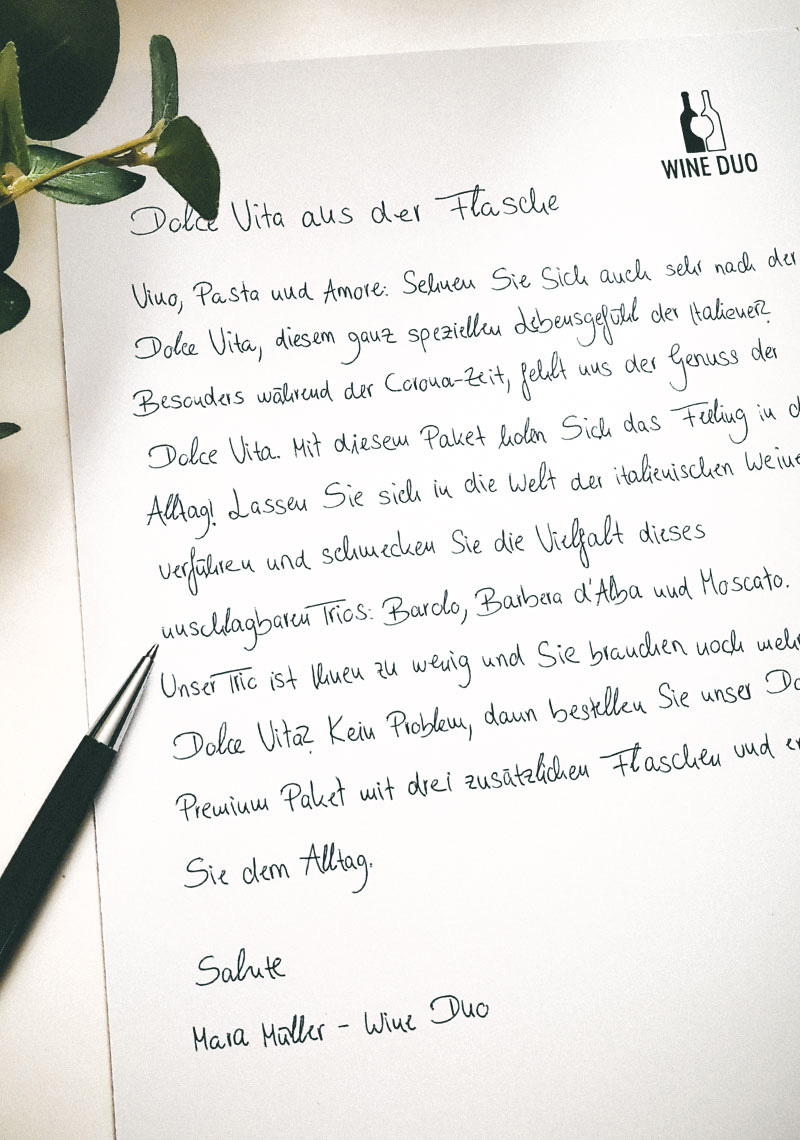 WINE DUO
Dolce Vita aus der Flasche
Vino, Pasta und Amore: Sehnen Sie Sich auch sehr nach der
Dolce Vita, diesem ganz speziellen Lebensgefühl der Italiener?
Besonders während der Corona-Zeit, fehlt uns der Genuss der
Dolce Vita. Mit diesem Paket holen Sich das Feeling in
Alltag! Lassen Sie sich in die Welt der italienischen Weine
verführen und schmecken Sie die Vielfalt dieses
unschlagbaren Trios: Barolo, Barbera d'Alba und Moscato.
Unser Trio ist Ihnen zu wenig und Sie brauchen noch mehr
Dolce Vita? Kein Problem, dann bestellen Sie unser
Premium Paket mit drei zusätzlichen Flaschen und
Sie dem Alltag.
Salute
Mara Müller - Wine Duo